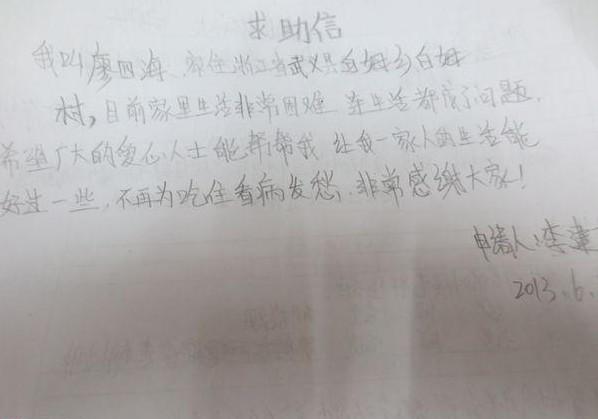 求助信
我叫廖四海、家住浙江省武义县白姆乡白姆
村,目前家里生活非常困难 连生活都成了问题.
希望广大的爱心人士能帮帮我 让我一家人的生活能
好过一些,不再为吃住看病发愁,非常感谢大家!
申请人:李
2013.6.